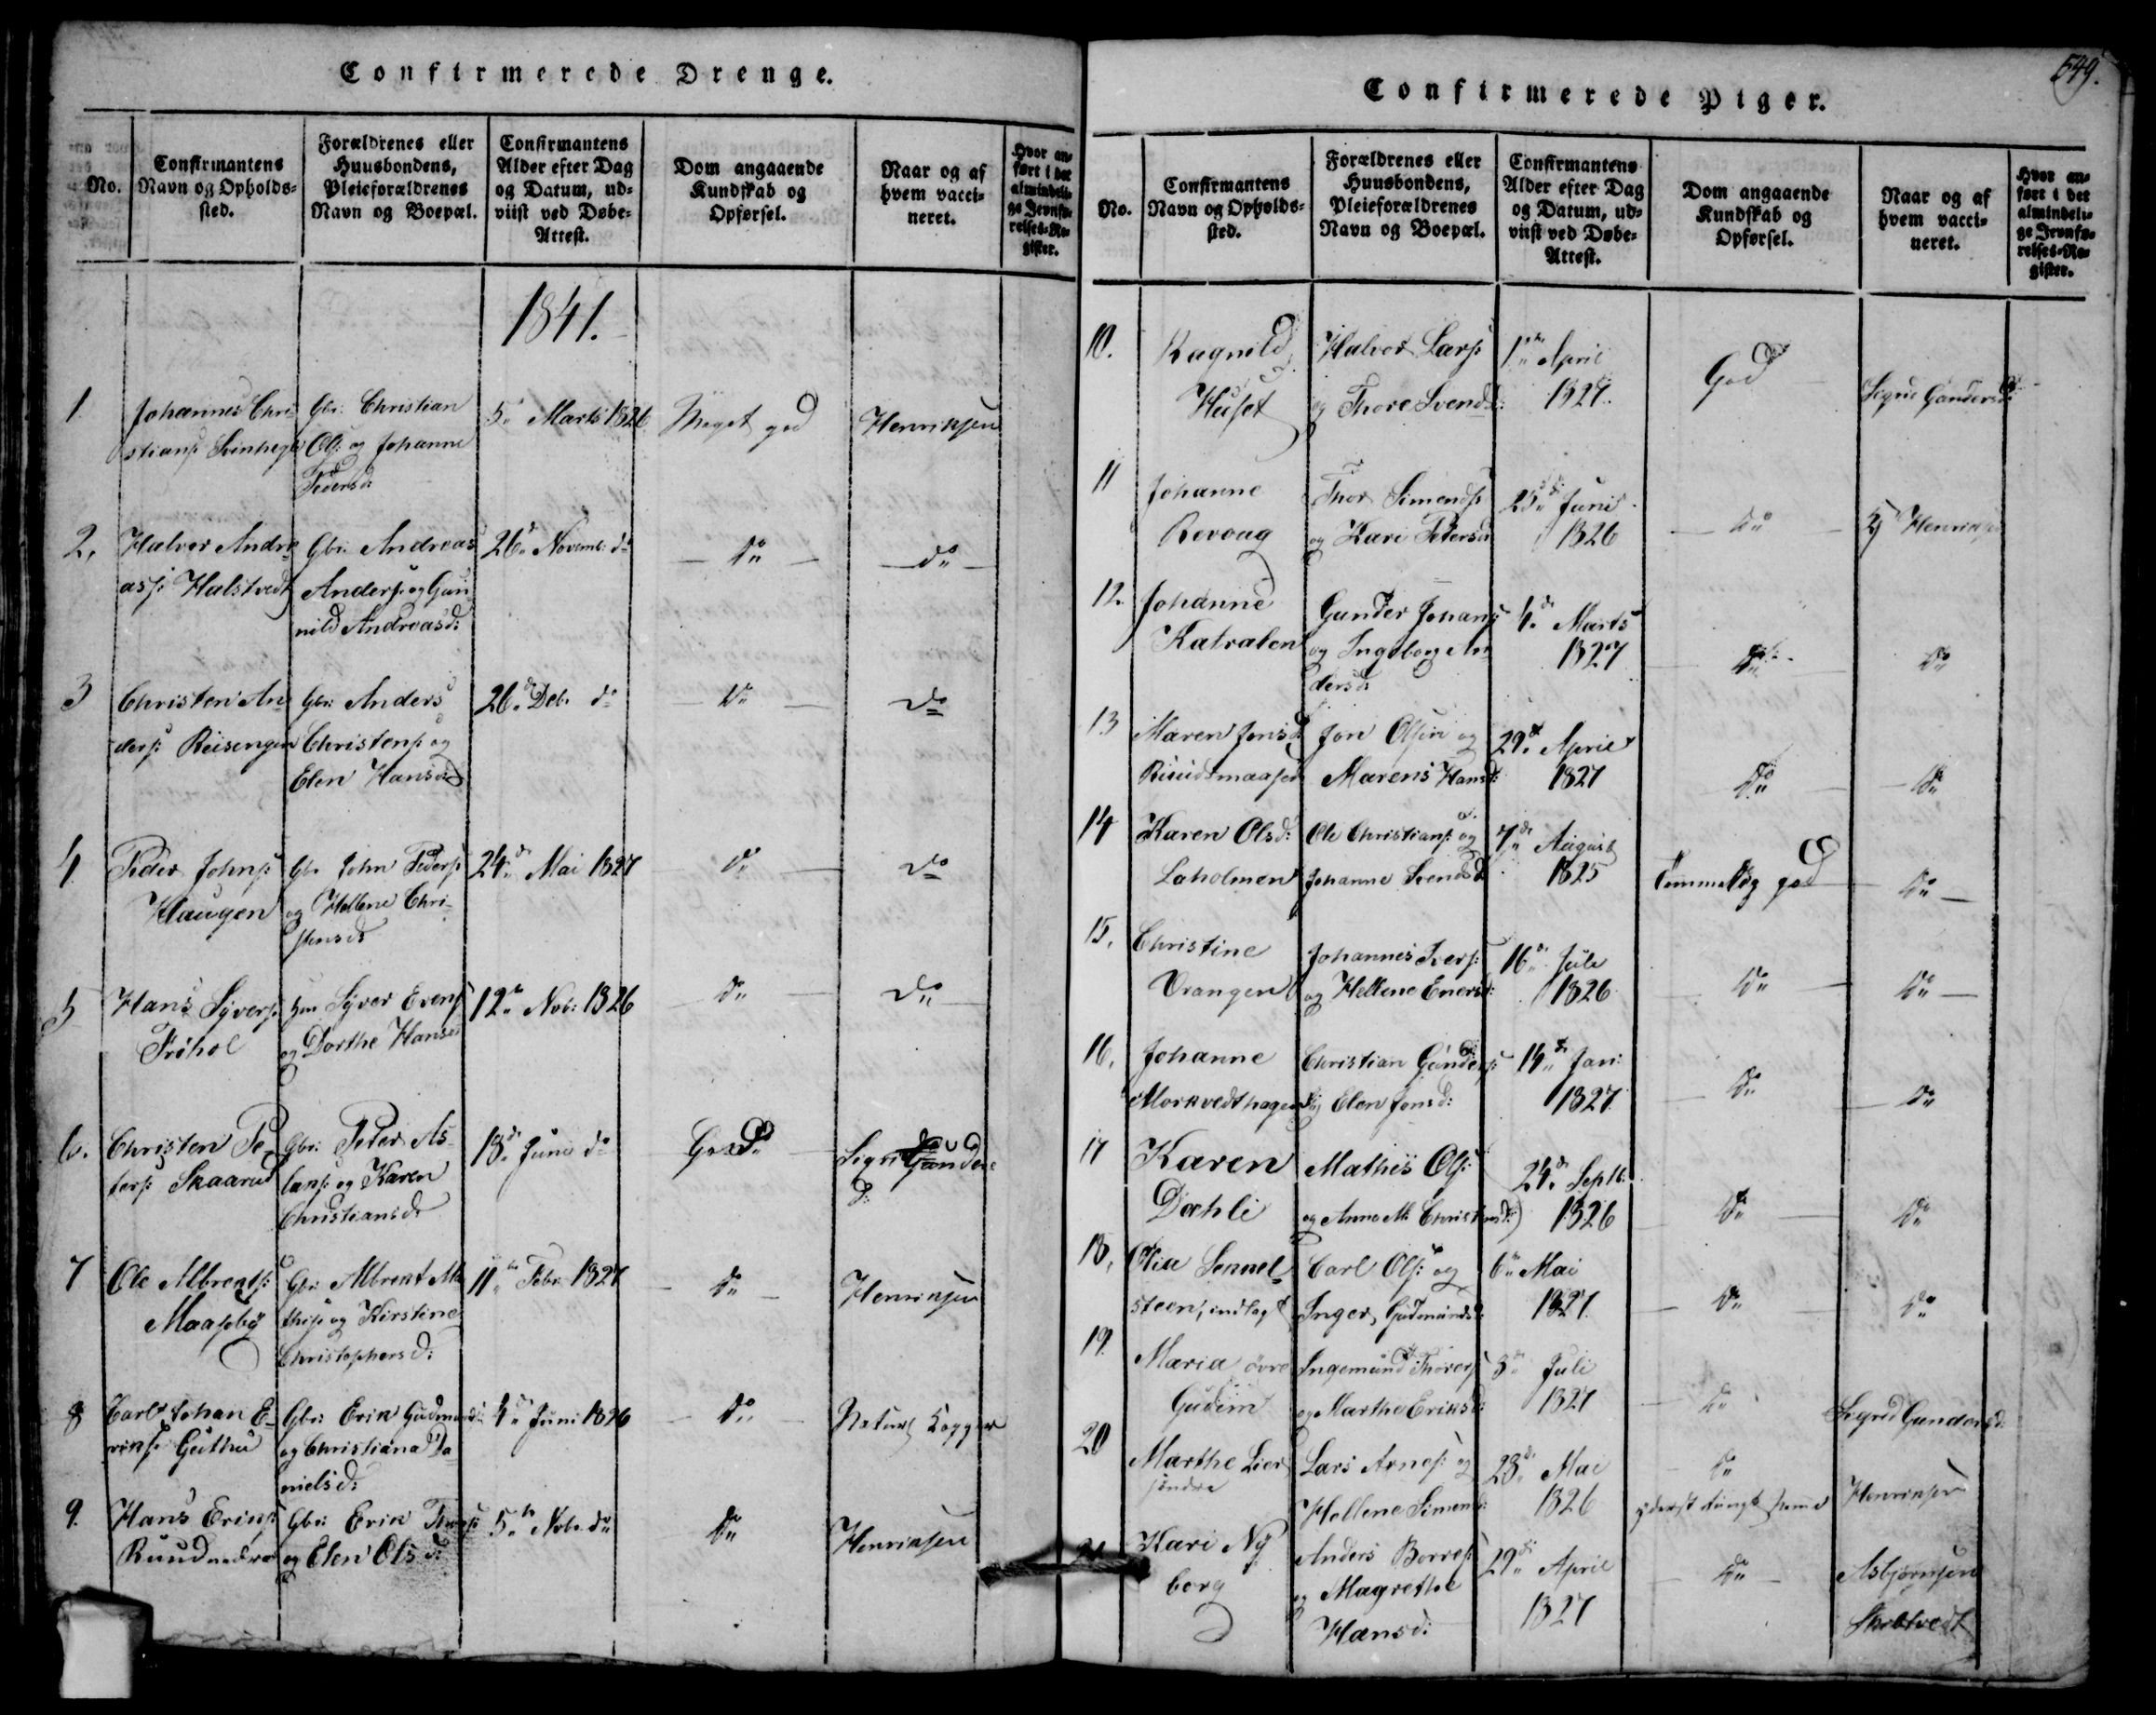 Confirmerede Drenge.
No.
Confirmantens
Navn og Opholds-
sted.
Forældrenes eller
Huusbondens,
Pleieforældrenes
Navn og Boepæl.
Confirmantens
Alder efter Dag
og Datum, ud-
viist ved Døbe-
Attest.
Dom angaaende
Kundskab og
Opførsel.
Naar og af
hvem vacci-
neret.
Hvor an-
ført i det
almindeli-
ge Jevnfø-
relses-Re-
gister.
1841.
1
Johannes Chri
stians:
Gbr: Christian
Ols: og Johanne
Pedersd:
5. Marts 1826
Meget god
Henriksen
2.
Halvor Andre
ass: Halstvedt
Gbr: Andreas
Anders: og Gun
nild Andreasd:
26de Novemb: do
do
do
3
Christen An
ders: Reisengen
Gbr: Anders
Christens: og
Elen Hansd:
26de Deb. do
do
do
4
Peder Johns:
Haugen
Gbr. John Peders:
og Hellene Chri-
stensd:
24de Mai 1827
do
do
5
Hans Syvers:
Frøhol
Syver Evens:
og Dorthe Hansd:
12te Nob: 1826
do
do
6.
Christen Pe-
ters: Skaarud
Gbr: Peter As-
lans: og Karen
Christiansd:
18de Juni do
God
Sigri Gunders
d:
7
Ole Albrents:
Maaseby
Gbr: Albrent Ma
this: og Kirstine
Christophersd:
11te Febr: 1827
do
Henriksen
8
Carl Johan E-
riks: Guthu
Gbr: Erik Gudmunds:
og Christiana Da
nielsd:
4de Juni 1826
do
Naturl Kopper
9.
Hans Eriks:
Ruud nedre
Gbr: Erik
og Elen Olsd:
5te Nob. do
do
Henriksen
549.
Confirmerede Piger.
No.
Confirmantens
Navn og Opholds-
sted.
Forældrenes eller
Huusbondens,
Pleieforældrenes
Navn og Boepæl.
Confirmantens
Alder efter Dag
og Datum, ud-
viist ved Døbe-
Attest.
Dom angaaende
Kundskab og
Opførsel.
Naar og af
hvem vacci-
neret.
Hvor an-
ført i det
almindeli-
ge Jevnfø-
relses-Re-
gister.
10.
Ragnild
Huset
Halvor Lars:
og Thore Svends:
1ste April
1827.
God
Signe Gundersd:
11
Johanne
Revoug
Thor Simends:
og Kari Petersd:
25de Juni
1826
do
Henriksen
12.
Johanne
Katralen
Gunder Johans:
og Ingeborg An
dersd:
4de Marts
1827
do
do
13
Maren Jonsd:
Jon Olsen og
Marens Hansd:
29de April
1827
do
do
14
Karen Olsd:
Loholmen
Ole Christians: og
Johanne Svendsd:
7de August
1825
Temmelig god
do
15.
Christine
Vrangen
Johannes Ivers:
og Hellene Enersd:
16de Juli
1826
do
do
16.
Johanne
Morkvedthagen
Christian Gunders:
og Elen Jonsd:
14de Jan:
1827
do
do
17
Karen
Dæhli
Mathis Ols:
og Anne M: Christensd:
24de Septb.
1826
do
do
18.
Olia Semmel-
steen, indlagt
Carl Ols: og
Inger Gudmundsd:
6te Mai
1827.
do
do
19.
Maria øvre
Gudim
Ingemund Thorers:
og Marthe Eriksd:
3de Juli
1827
do
Sigrid Gundersd:
20
Marthe Lier
søndre
Lars Arnes: og
Hellene Simensd:
28de Mai
1826
do
yderst tungt nemme
Henriksen
21
Kari Ny
borg
Anders Borres:
og Magrethe
Hansd:
29de April
1827
do
Asbjørnsen
Skibtvedt